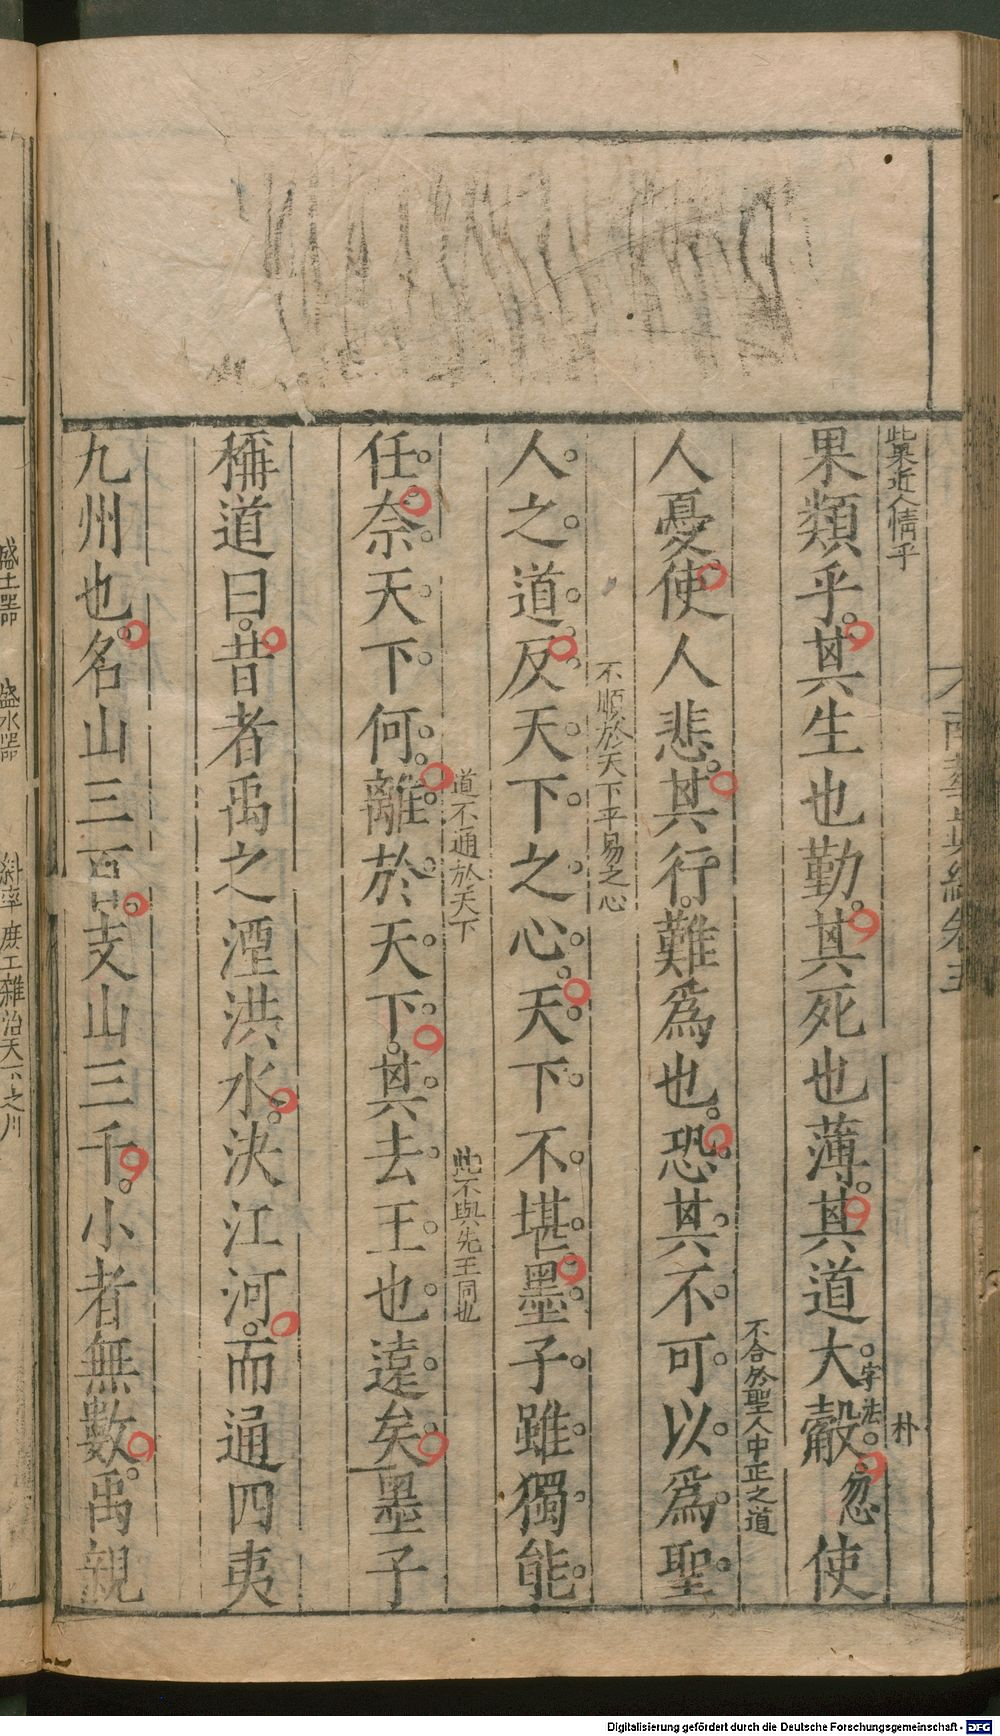 此果近人情乎
果類乎其生也勤其死也薄其道大觳忽使
字法
朴
不合於聖人中正之道
人憂使人悲其行難為也恐其不可以為聖
不順於天下平易之心
人之道反天下之心天下不堪墨子雖獨能
道不通於天下
此不與先王同也
任奈天下何離於天下其去王也遠矣墨子
稱道曰昔者禹之湮洪水決江河而通四夷
九州也名山三百支山三千小者無數禹親
盛土器
盛水器
雜治天下之川
Digitalisierung gefördert durch die Deutsche Forschungsgemeinschaft - DFG